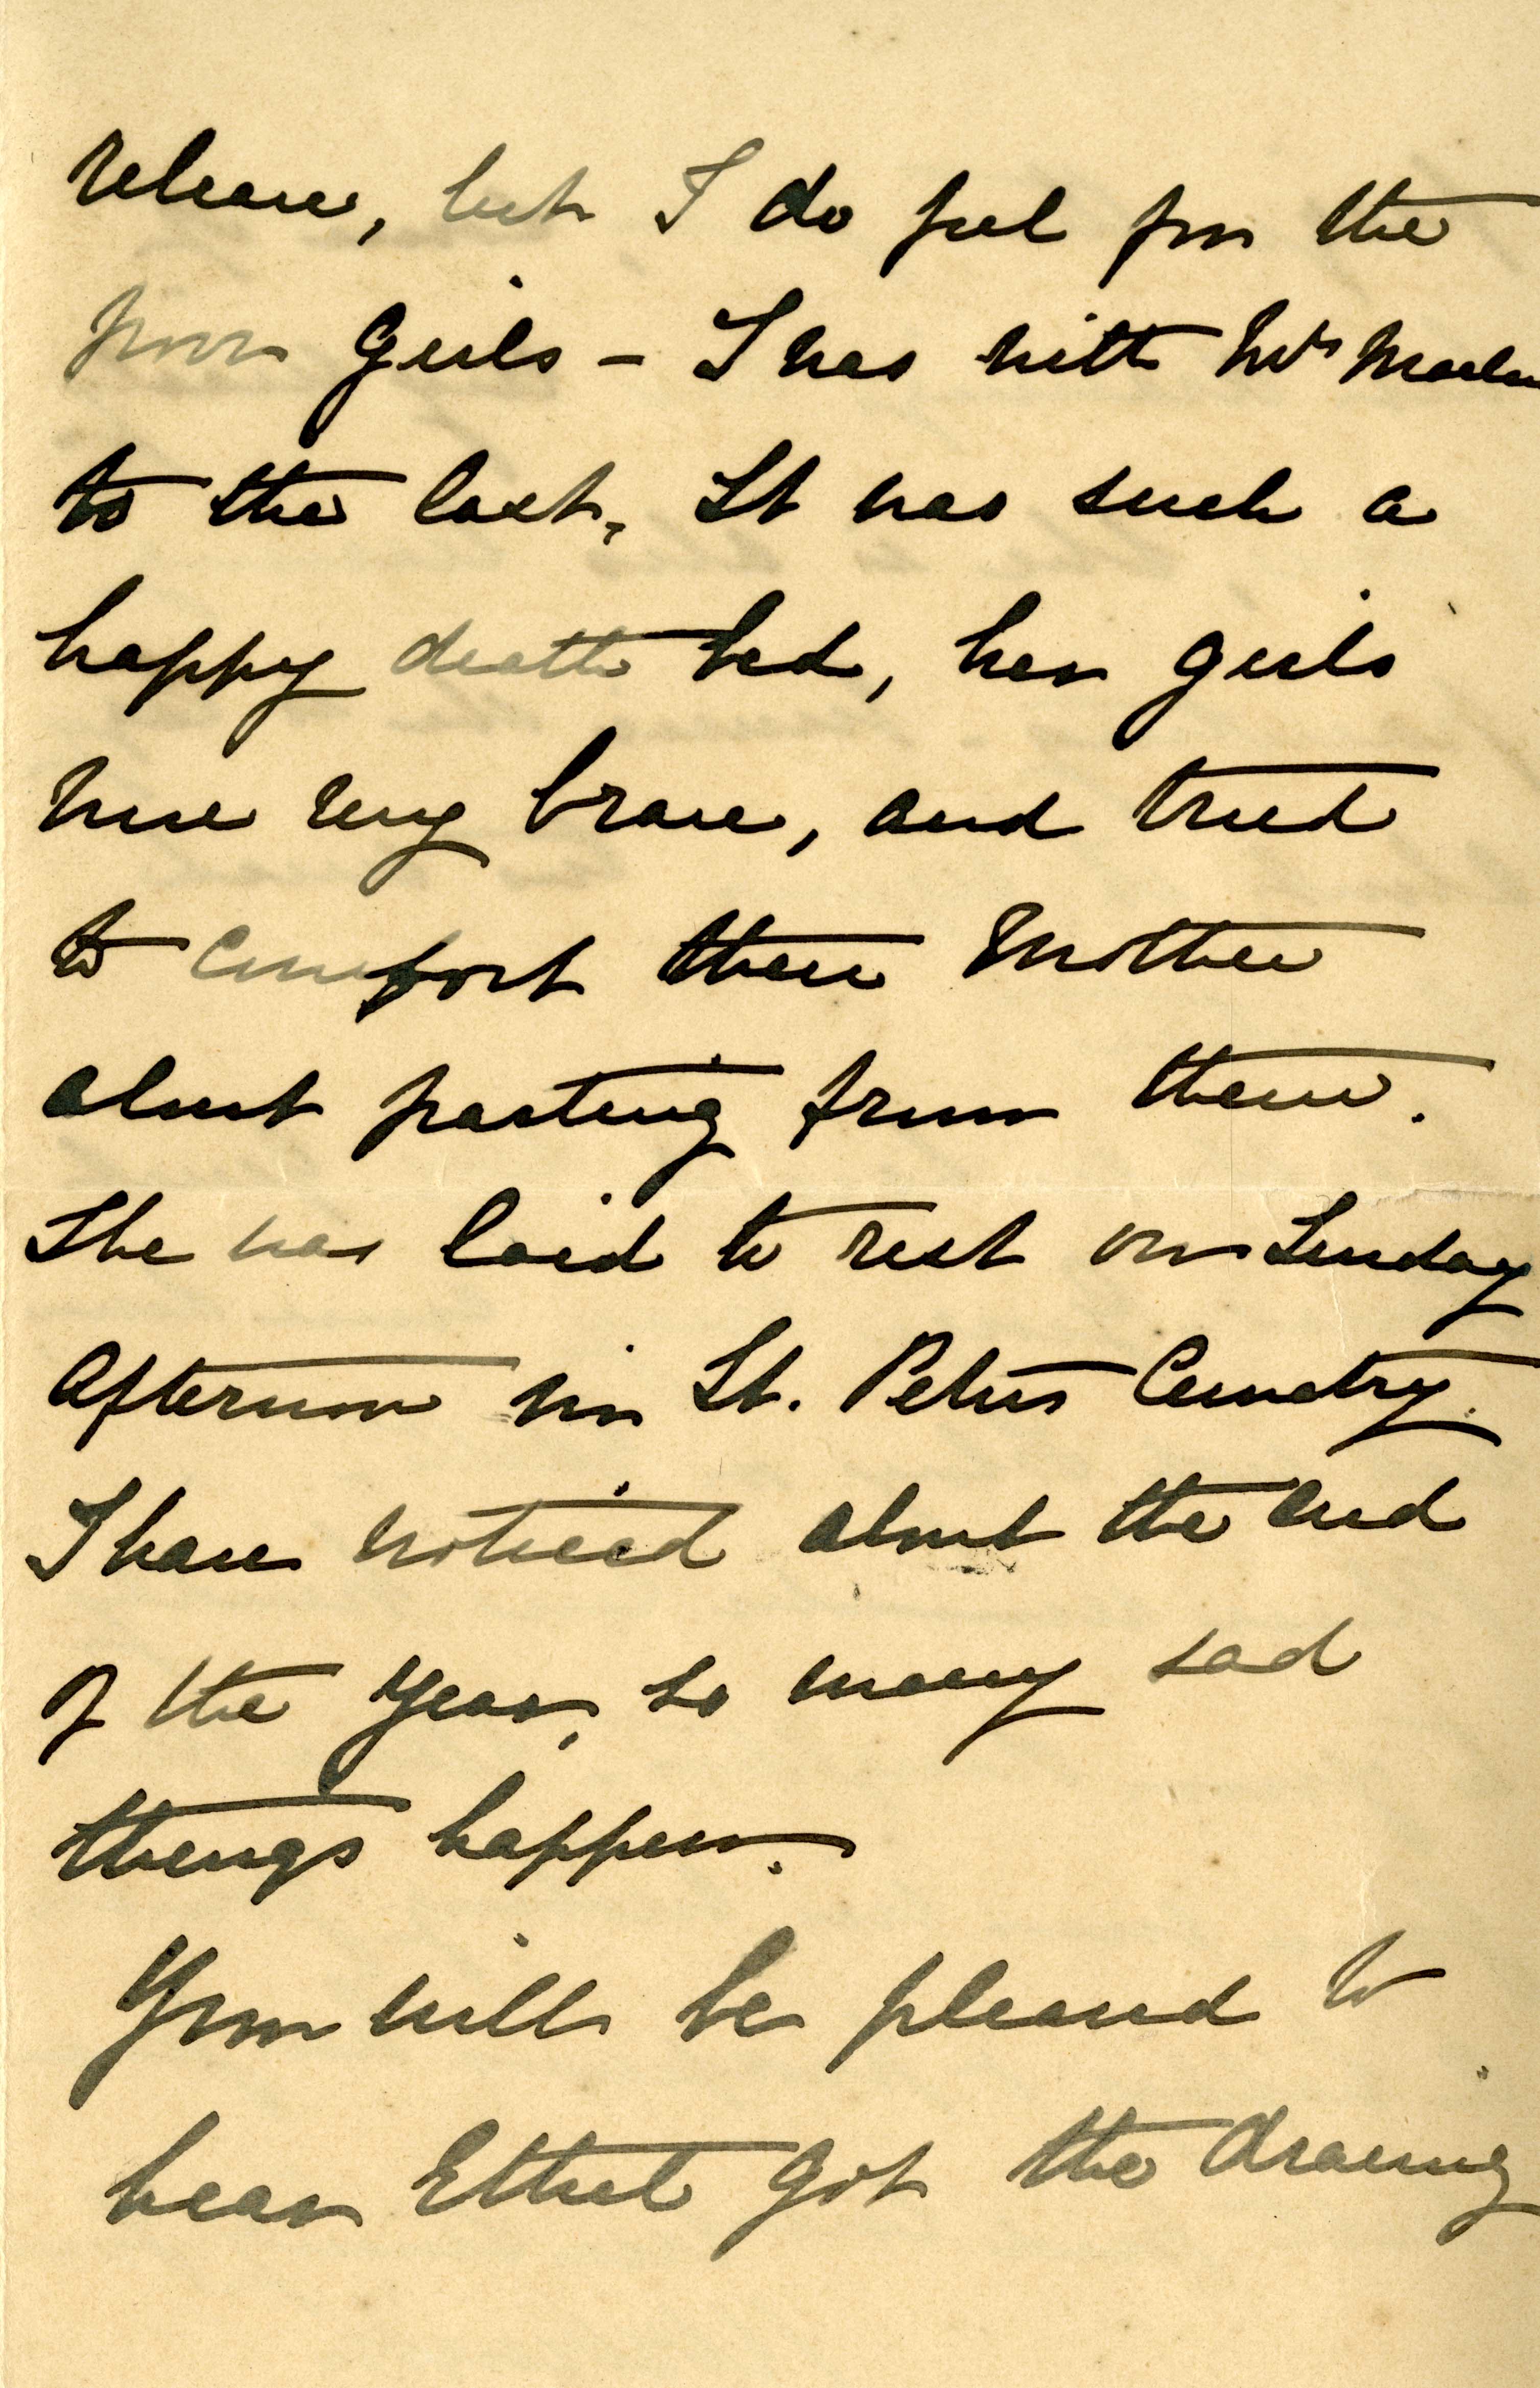 release, but I do feel for the
poor Girls - I was with Mrs
to the last, It was such a
happy death bed, her girls
were very brave, and tried
to comfort their Mother
about parting from them.
She was laid to rest on Sunday
afternoon in St. Peters Cemetry.
I have noticed about the end
of the Year, so many sad
things happen.
You will be pleased to
hear Ethel got the drawing